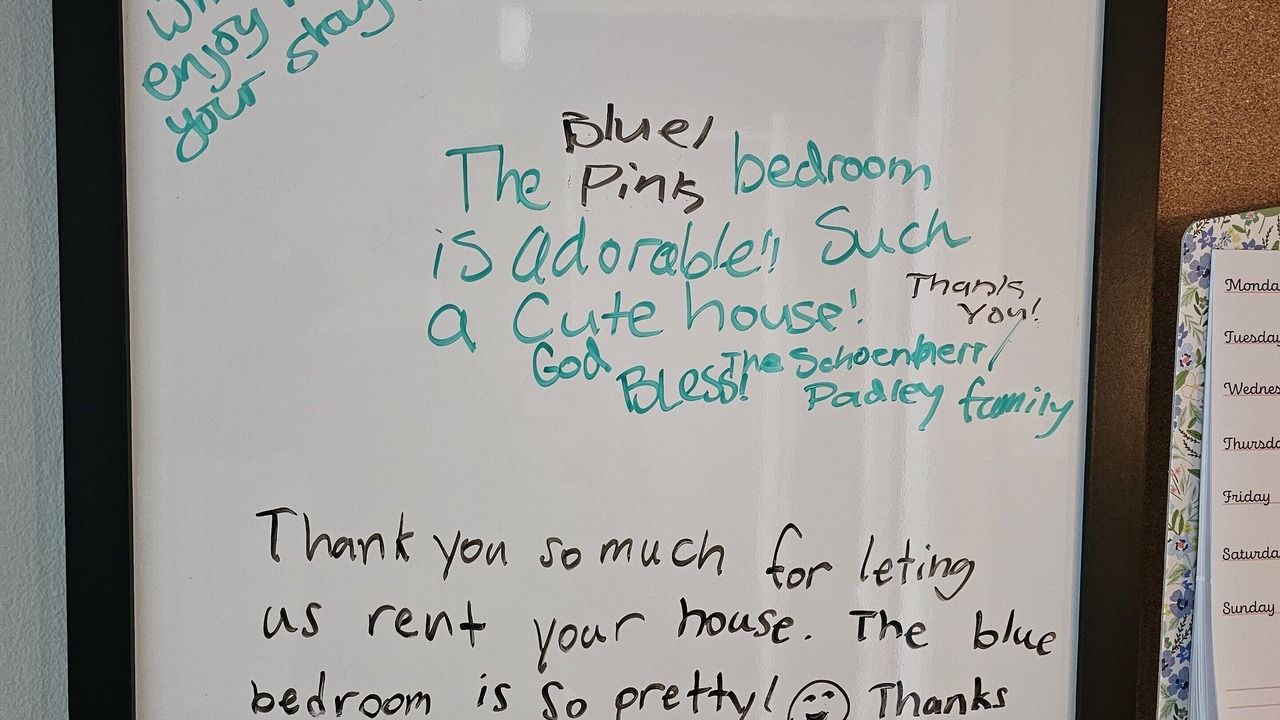 enjoy
your stay
Blue/
The Pink bedroom
is adorable!! Such
a Cute house!
Thanks
You!
God
Bless!
The Schoenherr/
Padley family
Thank you so much for leting
us rent your house. The blue
bedroom is so pretty! Thanks
Monda
Tuesday
Wednes
Thursda
Friday
Saturda
Sunday